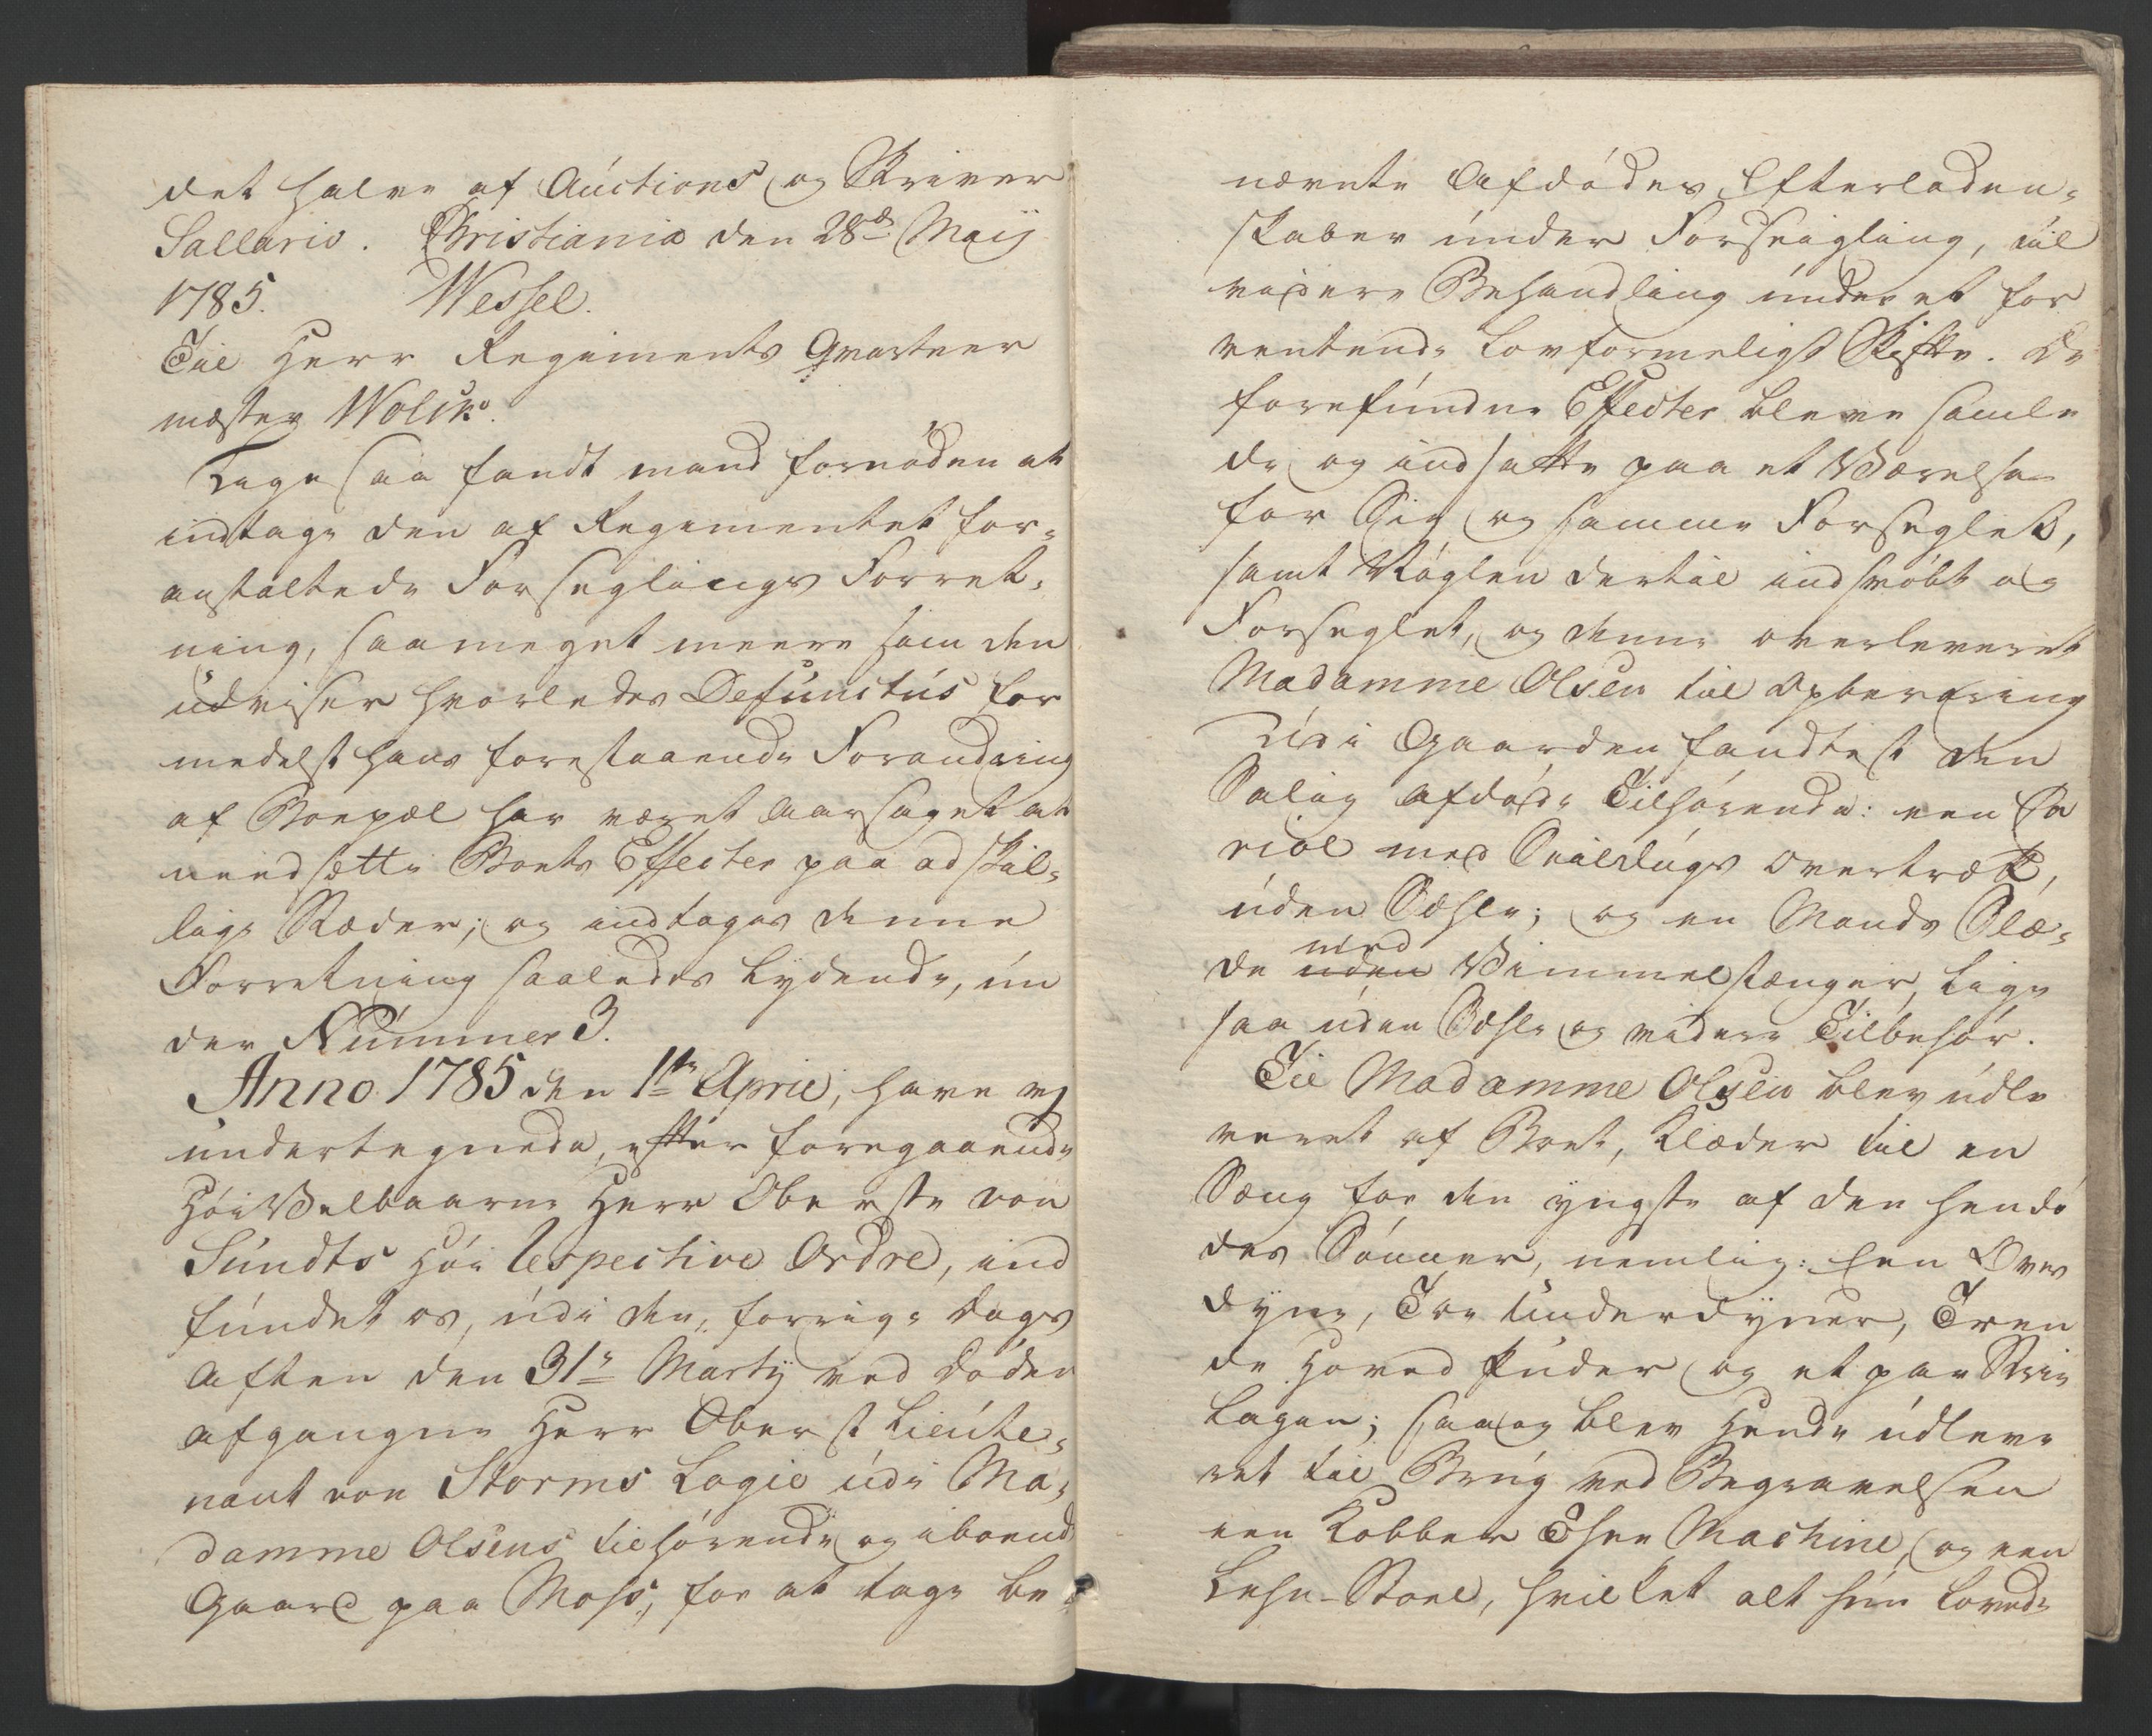 det halve af Auctions og Skriver
Sallario. Christiania den 28de Maij
1785. Wessel.
Til Herr Regiments Qvarteer
mæster Wolck.
Lige saa fandt mand fornöden at
indtage den af Regimentet for=
anstaltede Forseglings Forret=
ning, saameget meere som den
udviser hvorledes Defunctus for
medelst hans forestaaende Forandring
af Boepæl har været aarsaget at
neendsætte Boets Effecter paa adskil=
lige Stæder; og indtages denne
Forretning saaledes lydende, un
der Nummer 3.
Anno 1785 den 1te April, have vj
undertegnede, efter foregaaende
HöiVelbaarne Herr Oberste von
Sundts Höi respective Ordre, ind
fundet os, udi den, forrige Dags
Aften den 31te Martij ved Döden
afgangne Herr Oberst Lieute=
nant von Storms Logie udi Ma=
damme Olsens tilhörende og iboend
Gaard paa Moss, for at tage be
nævnte Afdödes Efterladen=
skaber under Forseigling, til
videre Behandling under et for
ventende lovformeligt Skifte. De
forefundne Effecter bleve samle
de og indsatte paa et Værelse
for Sig og samme Forseglet,
samt Nöglen dertil indsvöbt og
Forseglet, og denne overleveret
Madamme Olsen til Opbevaring
Udi Gaarden fandtest den
Salig afdöde Tilhörende: een Ca
riol med Seildugs overtræk,
uden Sehle; og en Mands Slæ=
de uden med Vimmelstænger, lige
saa uden Sehle og videre Tilbehör.
Til Madamme Olsen blev udle
veret af Boet, Klæder til en
Sæng for den yngste af den hende
des Sönner, nemlig: Een Over
dyne, Toe Underdyner, Tren
de Hoved Puder og et par Strie
Lagen; saa og blev hende udleve
ret til Brug ved Begravelsen
een Kobber Thee Machine, og een
Lehn-Stoel, hvilket alt hun lovede